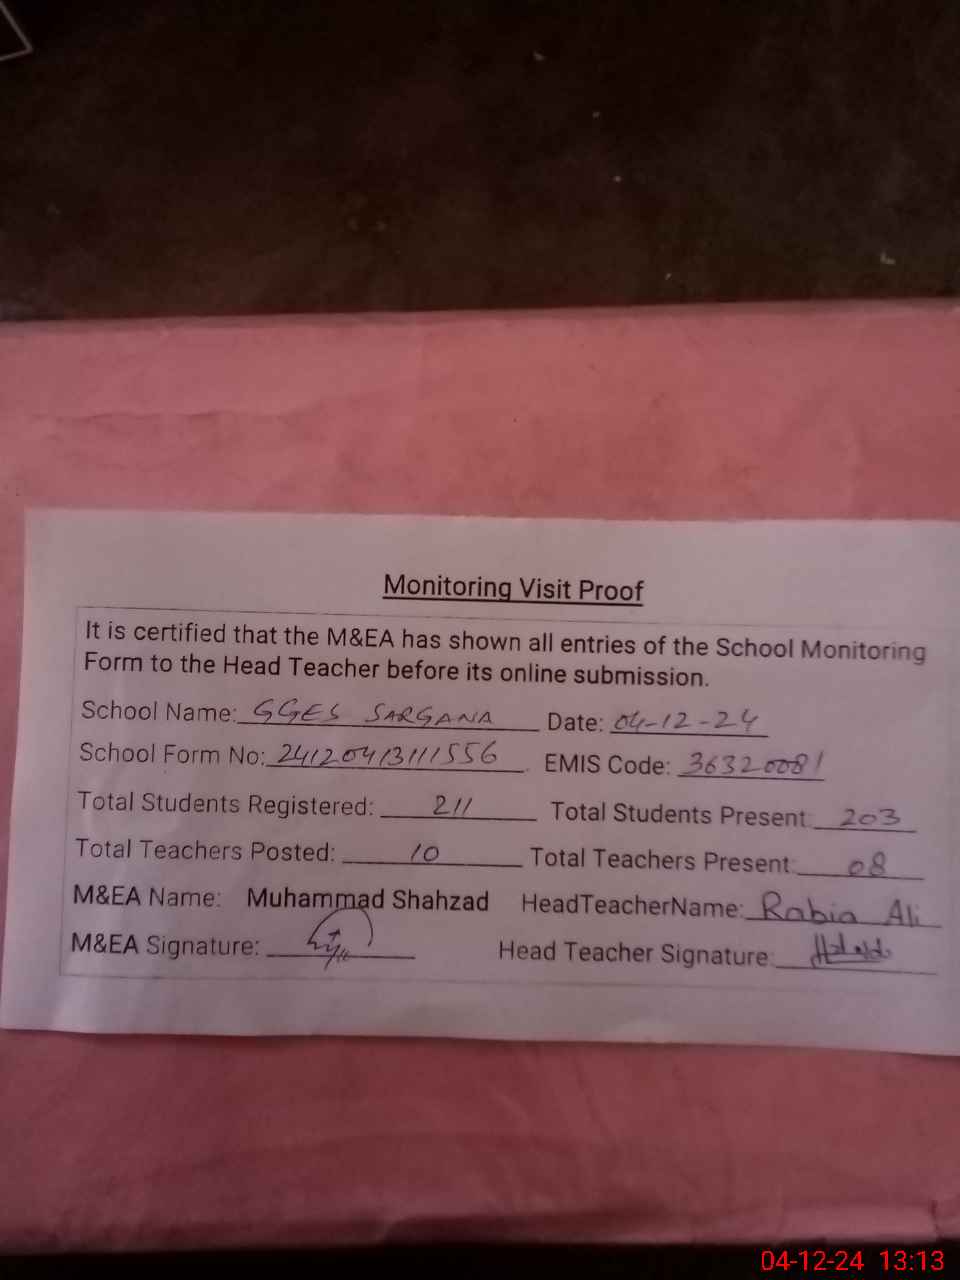 Monitoring Visit Proof
It is certified that the M&EA has shown all entries of the School Monitoring
Form to the Head Teacher before its online submission.
School Name: GGES SARGANA Date: 04-12-24
School Form No: 24120413111556 EMIS Code: 36320081
Total Students Registered: 211 Total Students Present: 203
Total Teachers Posted: 10 Total Teachers Present: 08
M&EA Name: Muhammad Shahzad HeadTeacherName: Rabia Ali
M&EA Signature: Head Teacher Signature:
04-12-24 13:13